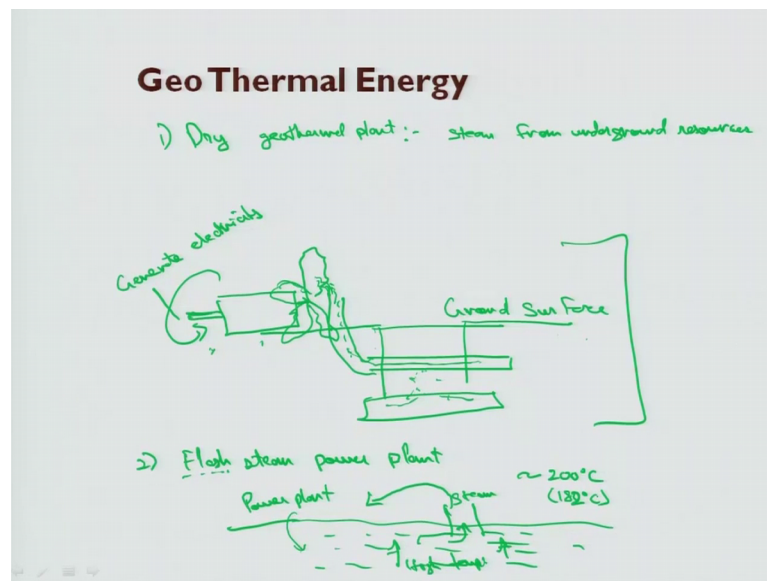 Geo Thermal Energy
1) Dry geothermal plant :- steam from underground resources
Generate electricity
Ground Surface
2) Flash steam power plant
~ 200°C
(182°C)
Power plant
Steam
High temp